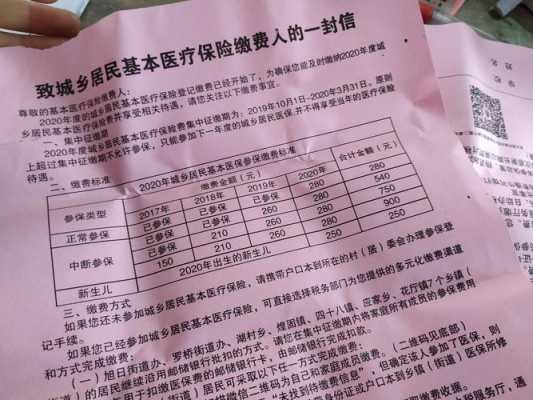 致城乡居民基本医疗保险缴费人的一封信
尊敬的基本医疗保险缴费人：
2020年度的城乡居民基本医疗保险登记缴费已经开始了，为确保您能及时缴纳2020年度城
乡居民基本医疗保险费并享受相关待遇，请您关注以下缴费事宜。
一、集中征缴期
2020年度城乡居民基本医疗保险费集中征缴期为：2019年10月1日-2020年3月31日。原则
上超过集中征缴期不允许参保，只能参加下一年度的城乡居民医保，并不得享受当年的医疗保险
待遇。
二、缴费标准
2020年城乡居民基本医保参保缴费标准
参保类型 缴费金额（元） 合计金额（元）
2017年 2018年 2019年 2020年
正常参保 已参保 已参保 已参保 280 280
中断参保 已参保 已参保 260 280 540
已参保 210 260 280 750
150 210 260 280 900
新生儿 2020年出生的新生儿 250 250
三、缴费方式
如果您还未参加城乡居民基本医疗保险，请携带户口本到所在的村（居）委会办理参保登
记手续。
如果您已经参加城乡居民基本医疗保险，可直接选择税务部门为您提供的多元化缴费渠道
和方式完成缴费：
（一）旭日街道办、罗桥街道办、湖村乡、煌固镇、四十八镇、应家乡、花厅镇7个乡镇（
街道）的居民继续沿用邮储银行批扣的方式。请您在集中征缴期内将家庭所有成员的参保费用
用于扣缴医保费的邮储银行卡，由邮储银行完成扣款。
街道）居民可采取以下任一方式完成缴费：
微信二维码为自己和家庭成员缴费。（二维码见底部）
“未找到待缴费信息”，但确定该人参加了医保，则
身份证或户口本到乡镇（街道）医保所修